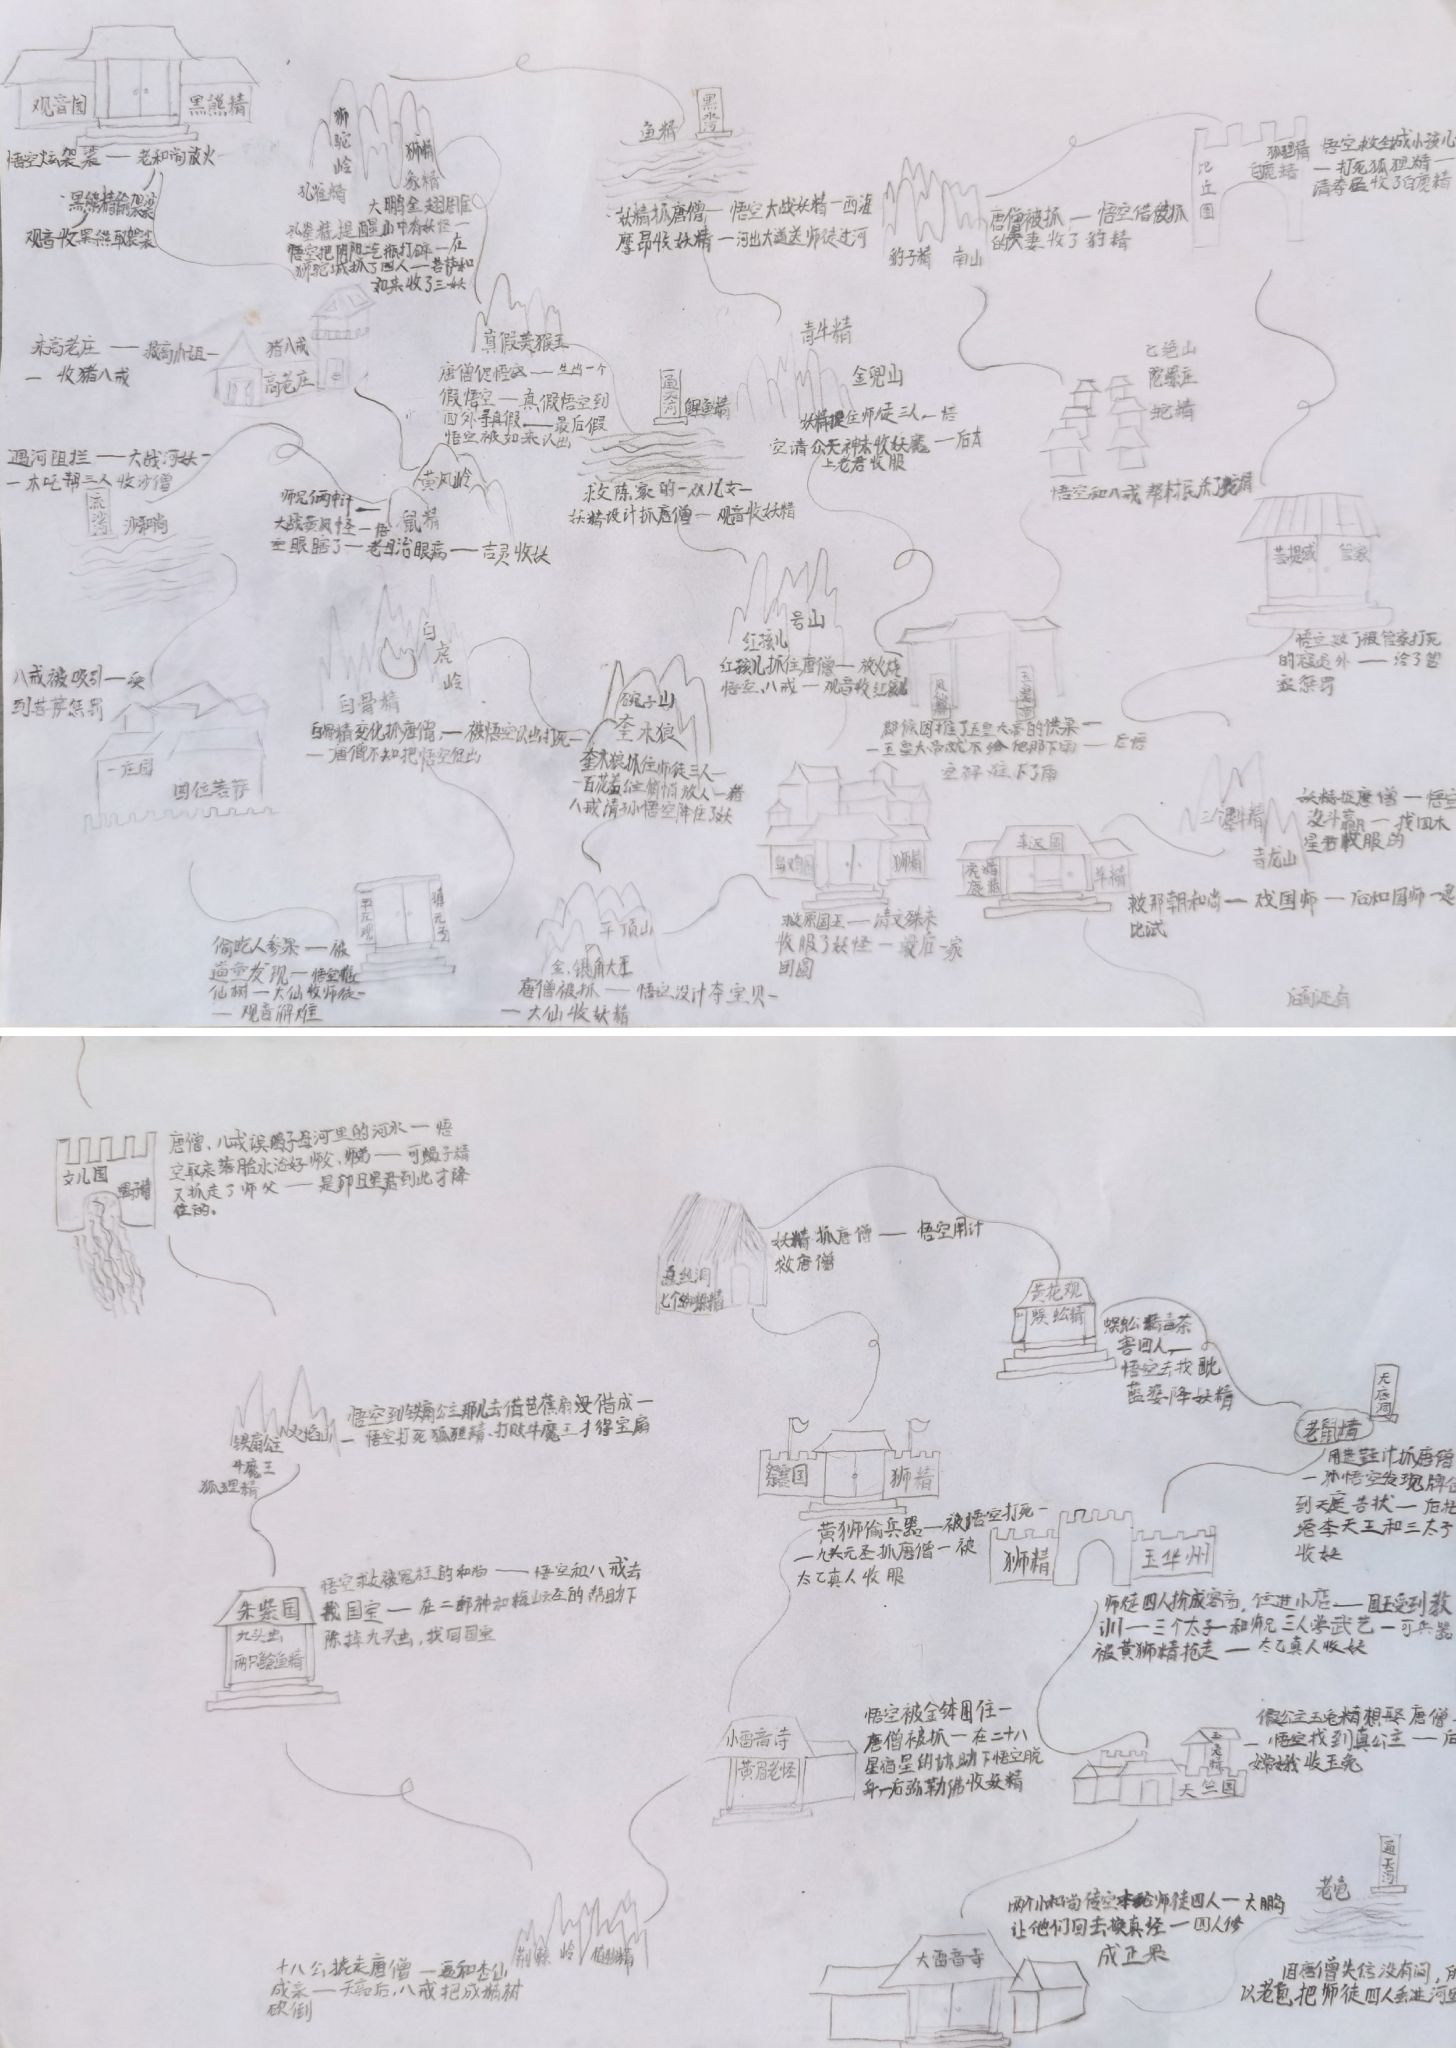 观音园
黑熊精
悟空炫袈裟——老和尚放火—
黑熊精偷袈裟
观音收黑熊取袈裟
狮驼岭
狮精
象精
孔雀精
大鹏金翅雕
悟空把阴阳气瓶打碎—在
狮驼城抓了四人—菩萨和
如来收了三妖
鱼精
黑水河
妖精抓唐僧—悟空大战妖精—西海
摩昂收妖精—河出大道送师徒过河
豹子精
南山
唐僧被抓—悟空借被抓
的夫妻收了豹精
比丘国
狐狸精
白鹿精
悟空救全城小孩儿
—打死狐狸精—
清孝星收了白鹿精
来高老庄——救高小姐—
—收猪八戒
猪八戒
高老庄
真假美猴王
唐僧促悟空——生出一个
假悟空—真假悟空到
西外寻真假——最后假
悟空被如来认出
通天河
鲤鱼精
救陈家的一双儿女—
妖精设计抓唐僧—观音收妖精
青牛精
金兜山
妖精捉住师徒三人—悟
空请众天神来收妖魔—后太
上老君收服
七绝山
陀螺庄
蛇精
悟空和八戒帮村民杀了蛇精
遇河阻拦——大战河妖—
—木吒帮三人收沙僧
流沙河
沙和尚
黄风岭
鼠精
师兄俩中计
大战黄风怪—悟
空眼瞎了—老母治眼病——吉灵收妖
管家
悟空救了被管家打死
的寇员外——给了管
家惩罚
八戒被吸引—受
到菩萨惩罚
一庄园
四位菩萨
白虎岭
白骨精
白骨精变化抓唐僧，—被悟空认出打死—
—唐僧不知把悟空促出
碗子山
奎木狼
奎木狼抓住师徒三人—
—百花羞公主偷偷放人—猪
八戒请孙悟空降住了妖
号山
红孩儿
红孩儿抓住唐僧—放火烧
悟空、八戒—观音收红孩儿
郡侯因推了玉皇大帝的供果—
—玉皇大帝就不给他那下雨—后悟
空解难下了雨
三个犀牛精
青龙山
妖精捉唐僧—悟空
没斗赢—找四木
星君收服的
车迟国
虎精
鹿精
羊精
救那朝和尚—戏国师—后和国师一起
比试
乌鸡国
狮精
救原国王—请文殊来
收服了妖怪—最后一家
团圆
镇元子
偷吃人参果—被
道童发现—悟空推
仙树—大仙收师徒—
—观音解难
平顶山
金、银角大王
唐僧被抓—悟空设计夺宝贝—
—大仙收妖精
后面还有
女儿国
蝎子精
唐僧、八戒误喝子母河里的河水—悟
空取来落胎水治好师父、师弟—可蝎子精
又抓走了师父——是卯日星君到此才降
住的。
盘丝洞
七个蜘蛛精
妖精抓唐僧——悟空用计
救唐僧
黄花观
蜈蚣精
蜈蚣精毒茶
害四人，—
悟空去找毗
蓝婆降妖精
无底洞
老鼠精
用连鞋计抓唐僧
—孙悟空发现牌位
到天庭告状—后托
塔李天王和三太子
收妖
铁扇公主
火焰山
牛魔王
狐狸精
悟空到铁扇公主那儿去借芭蕉扇没借成—
—悟空打死狐狸精、打败牛魔王才得宝扇
狮精
黄狮偷兵器—被悟空打死—
—九头元圣抓唐僧—被
太乙真人收服
狮精
玉华州
师徒四人扮成客商，住进小店——国王受到教
训—三个太子—和师兄三人学武艺—可兵器
被黄狮精抢走——太乙真人收妖
朱紫国
九头虫
两只鲶鱼精
悟空救被冤枉的和尚——悟空和八戒去
找国宝—在二郎神和梅山兄弟的帮助下
除掉九头虫，找回国宝
小雷音寺
黄眉老怪
悟空被金钵困住—
唐僧被抓—在二十八
星宿星的协助下悟空脱
身—后弥勒佛收妖精
玉兔精
天竺国
假公主玉兔精想娶唐僧
—悟空找到真公主——后
嫦娥收玉兔
荆棘岭
十八公捉走唐僧—要和杏仙
成亲——天亮后，八戒把成精树
砍倒
大雷音寺
两个小和尚传空本给师徒四人—大鹏鸟
让他们回去换真经—四人修
成正果
通天河
老龟
因唐僧失信没有问，所
以老龟把师徒四人丢进河里